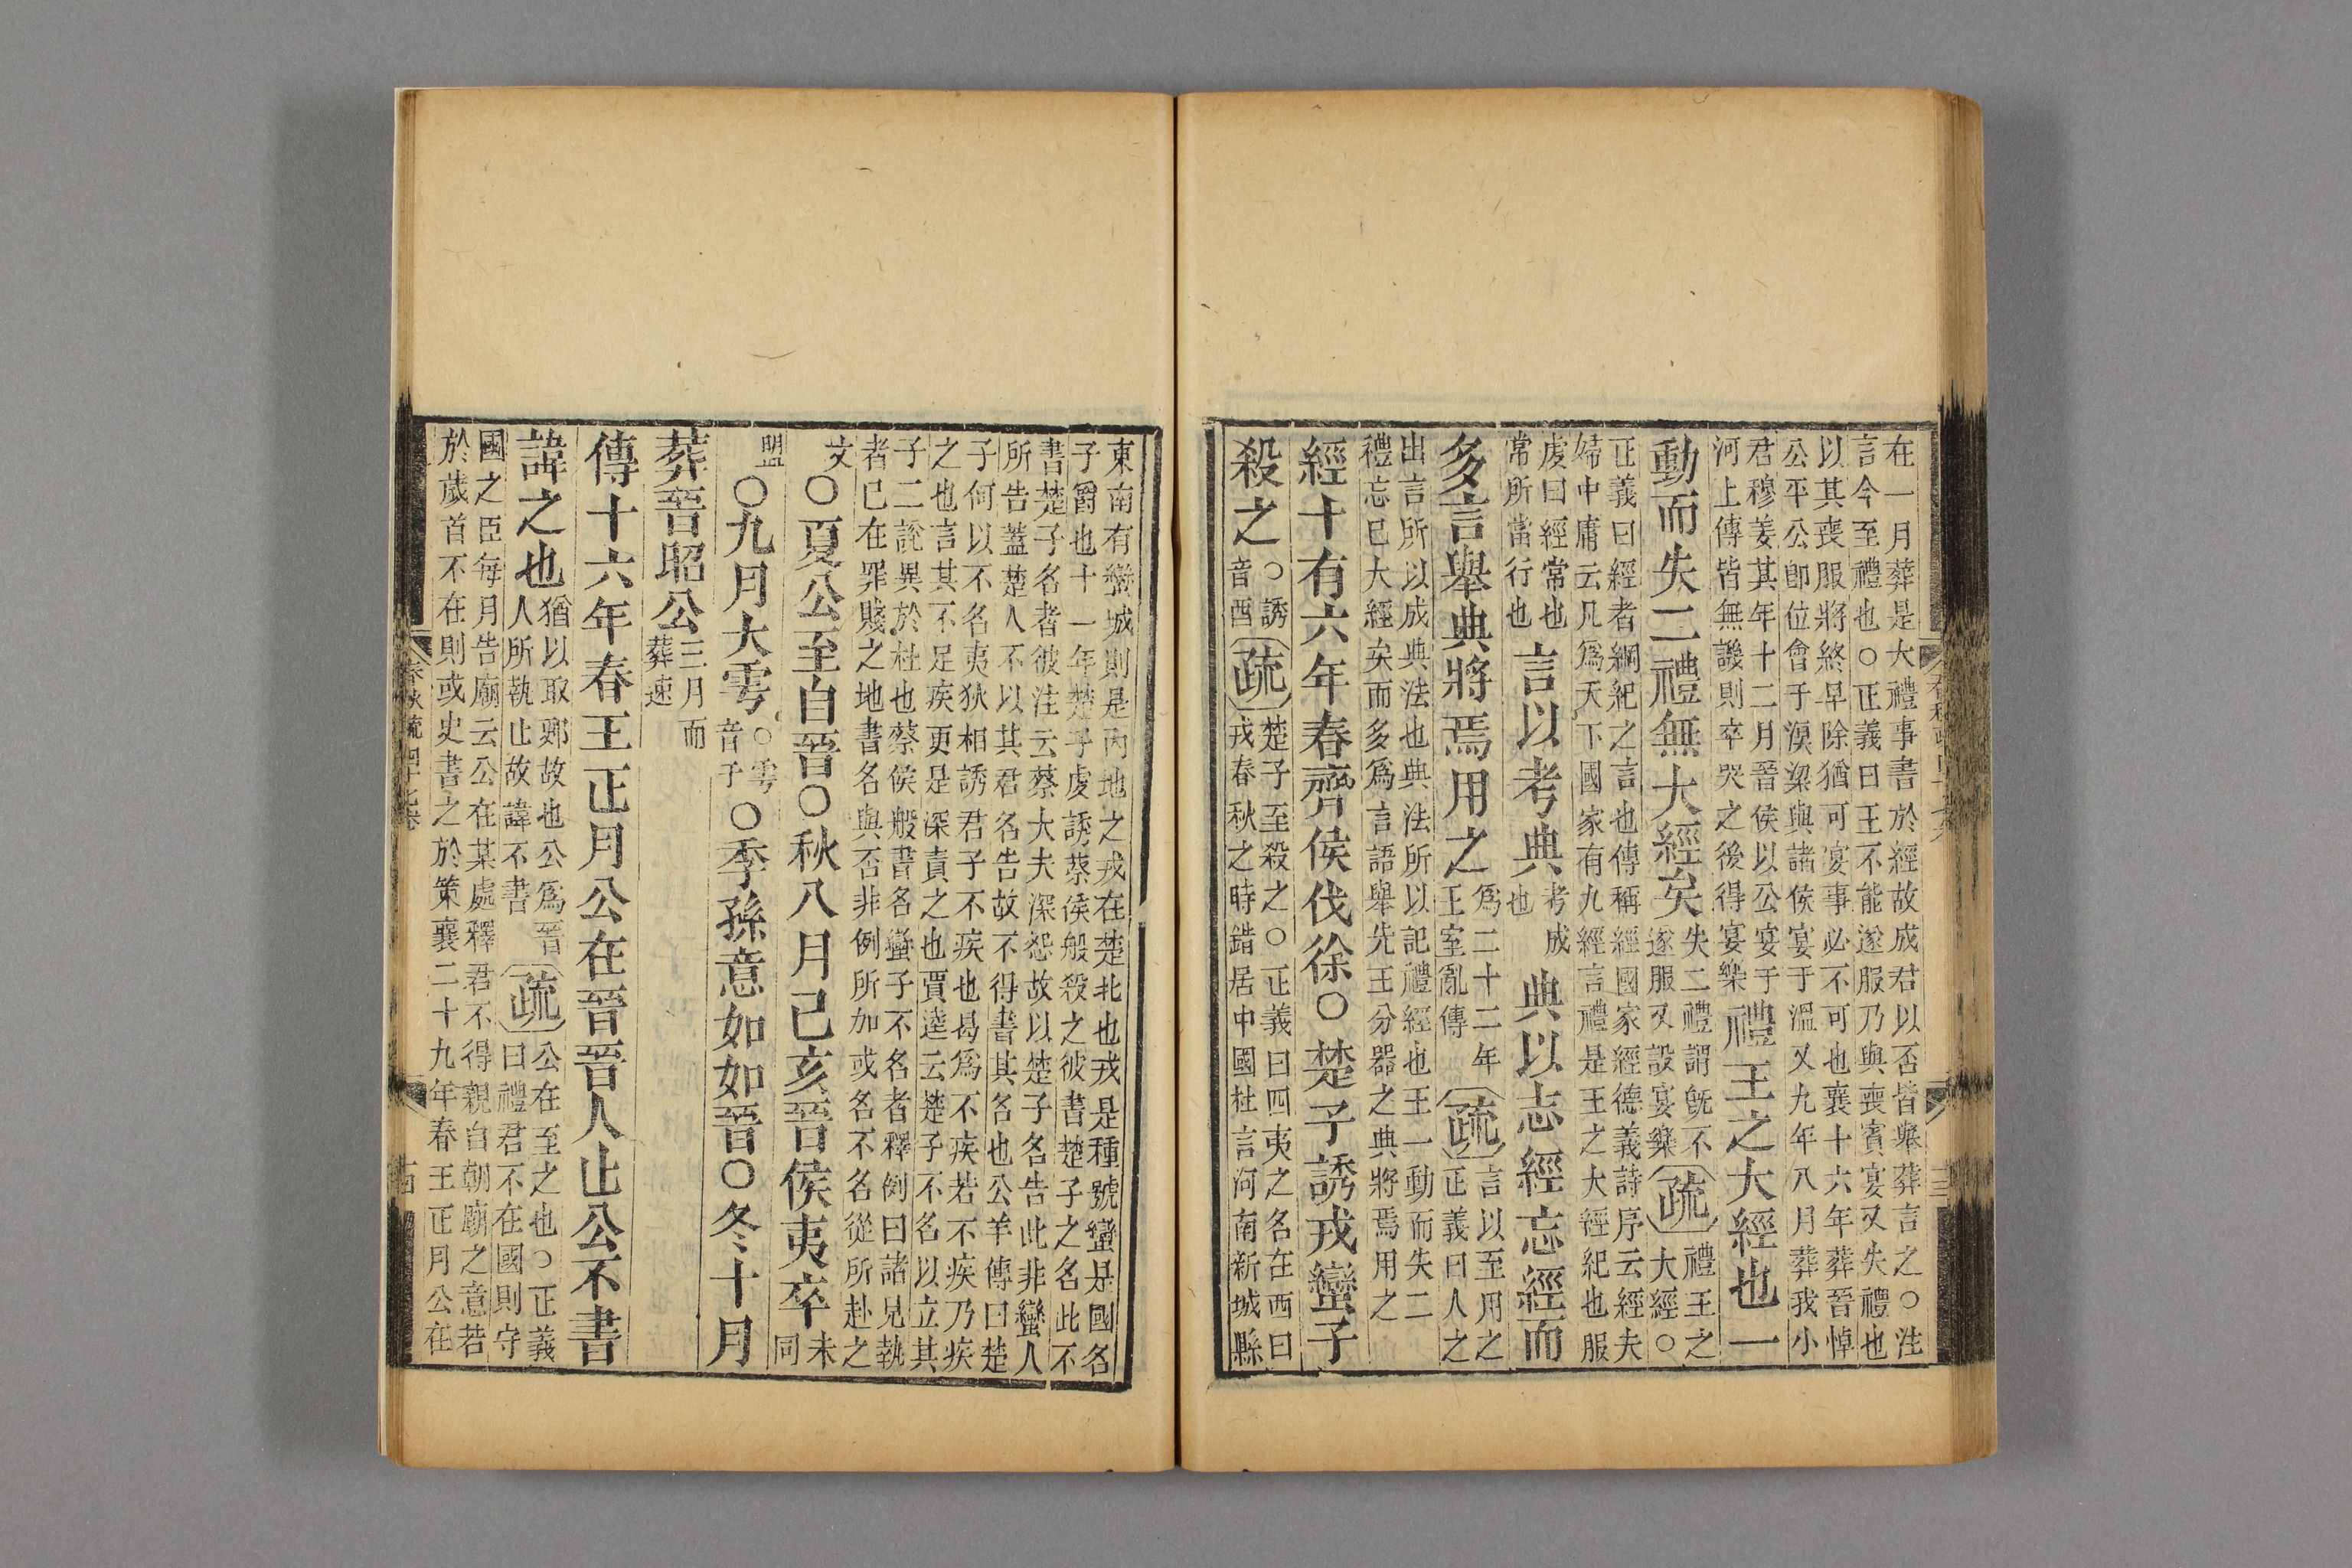 在一月葬是大禮事書於經故成君以否皆舉葬言之○注
言今至禮也○正義曰王不能遂服乃與喪賓宴又失禮也
以其喪服將終早除猶可宴事必不可也襄十六年葬晉悼
公平公卽位會于溴梁與諸侯宴于溫又九年八月葬我小
君穆姜其年十二月晉侯以公宴于
河上傳皆無譏則卒哭之後得宴樂
禮王之大經也一
動而失二禮無大經矣
失二禮謂旣不
遂服又設宴樂
疏
禮王之
大經○
正義曰經者綱紀之言也傳稱經國家經德義詩序云經夫
婦中庸云凡爲天下國家有九經言禮是王之大經紀也服
虔曰經常也
常所當行也
言以考典
考成
也
典以志經忘經而
多言舉典將焉用之
爲二十二年
王室亂傳
疏
言以至用之
正義曰人之
出言所以成典法也典法所以記禮經也王一動而失二
禮忘巳大經矣而多爲言語舉先王分器之典將焉用之
經十有六年春齊侯伐徐○楚子誘戎蠻子
殺之
○誘
音酉
疏
楚子至殺之○正義曰四夷之名在西曰
戎春秋之時錯居中國杜言河南新城縣
東南有蠻城則是內地之戎在楚北也戎是種號蠻是國名
子爵也十一年楚子虔誘蔡侯般殺之彼書楚子之名此不
書楚子名者彼注云蔡大夫深怨故以楚子名告此非蠻人
所告蓋楚人不以其君名告故不得書其名也公羊傳曰楚
子何以不名夷狄相誘君子不疾也曷爲不疾若不疾乃疾
之也言其不足疾更是深責之也賈逵云楚子不名以立其
子二說異於杜也蔡侯般書名蠻子不名者釋例曰諸見執
者已在罪賤之地書名與否非例所加或名不名從所赴之
文
○夏公至自晉○秋八月己亥晉侯夷卒
未同
盟
○九月大雩
○雩
音于
○季孫意如如晉○冬十月
葬晉昭公
三月而
葬速
傳十六年春王正月公在晉晉人止公不書
諱之也
猶以取鄆故也公爲晉
人所執止故諱不書
疏
公在至之也○正義
曰禮君不在國則守
國之臣每月告廟云公在某處釋君不得親自朝廟之意若
於歲首不在則或史書之於策襄二十九年春王正月公在